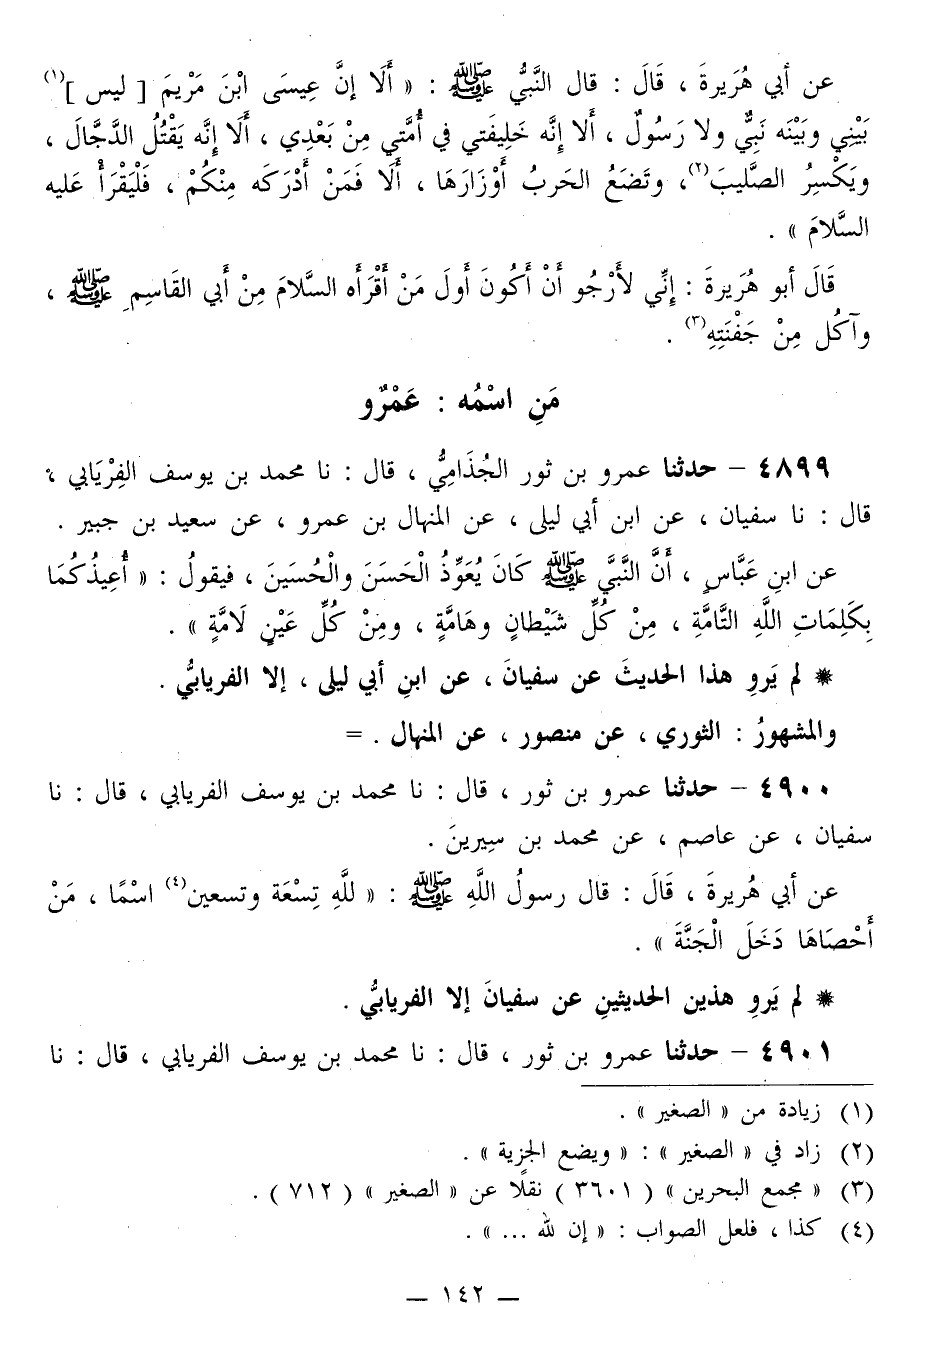 عن أبي هُرَيرةَ ، قَالَ : قال النَّبيُّ ﷺ : « أَلَا إنَّ عِيسَى ابْنَ مَرْيمَ [ ليس ](١)
بَيْنِي وبَيْنَه نَبِيٌّ ولا رَسُولٌ ، ألا إنَّه خَلِيفَتي في أُمَّتي مِنْ بَعْدِي ، أَلَا إنَّه يَقْتُلُ الدَّجَّالَ ،
ويَكْسِرُ الصَّليبَ(٢)، وتَضَعُ الحَربُ أَوْزَارَهَا ، أَلَا فَمَنْ أَدْرَكَه مِنْكُمْ ، فَلْيَقْرَأْ عَليه
السَّلامَ » .
قَالَ أبو هُرَيرةَ : إنِّي لأَرْجُو أَنْ أَكُونَ أَولَ مَنْ أَقْرَأَه السَّلامَ مِنْ أَبي القَاسِمِ ﷺ ،
وآكُل مِنْ جَفْنَتِهِ(٣) .
مَنِ اسْمُه : عَمْرٌو
٤٨٩٩ – حدثنا عمرو بن ثور الجُذَامِيُّ ، قال : نا محمد بن يوسف الفِرْيَابي ،
قال : نا سفيان ، عن ابن أبي ليلى ، عن المنهال بن عمرو ، عن سعيد بن جبير .
عن ابنِ عَبَّاسٍ ، أَنَّ النَّبيَّ ﷺ كَانَ يُعَوِّذُ الْحَسَنَ والْحُسَينَ ، فيقولُ : « أُعِيذُكُمَا
بِكَلِمَاتِ اللَّهِ التَّامَّةِ ، مِنْ كُلِّ شَيْطانٍ وهَامَّةٍ ، ومِنْ كُلِّ عَيْنٍ لَامَّةٍ » .
* لم يَروِ هذا الحديثَ عن سفيانَ ، عن ابنِ أبي ليلى ، إلا الفريابيُّ .
والمشهورُ : الثوري ، عن منصور ، عن المنهال . =
٤٩٠٠ – حدثنا عمرو بن ثور ، قال : نا محمد بن يوسف الفريابي ، قال : نا
سفيان ، عن عاصم ، عن محمد بن سِيرينَ .
عن أبي هُريرةَ ، قَالَ : قال رسولُ اللَّهِ ﷺ : « للَّهِ تِسْعَة وتسعين(٤) اسْمًا ، مَنْ
أَحْصَاهَا دَخَلَ الْجَنَّةَ » .
* لم يَروِ هذين الحديثينِ عن سفيانَ إلا الفريابيُّ .
٤٩٠١ – حدثنا عمرو بن ثور ، قال : نا محمد بن يوسف الفريابي ، قال : نا
(١) زيادة من « الصغير » .
(٢) زاد في « الصغير » : « ويضع الجزية » .
(٣) « مجمع البحرين » ( ٣٦٠١ ) نقلًا عن « الصغير » ( ٧١٢ ) .
(٤) كذا ، فلعل الصواب : « إن لله ... » .
– ١٤٢ –